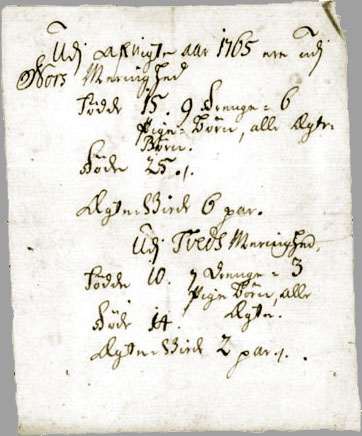 Udj afvigte aar 1765 ere udj
Ørs Menighed
Fødde 15. 9 Drenge= 6
Pige= Børn, alle Ægte
Børn.
Døde 25./.
Ægte=Viede 6 par.
Udj Tveds Menighed,
Fødde 10. 7 Drenge= 3
Pige Børn, alle
Døde 14. Ægte.
Ægte=Viede 2 par./.